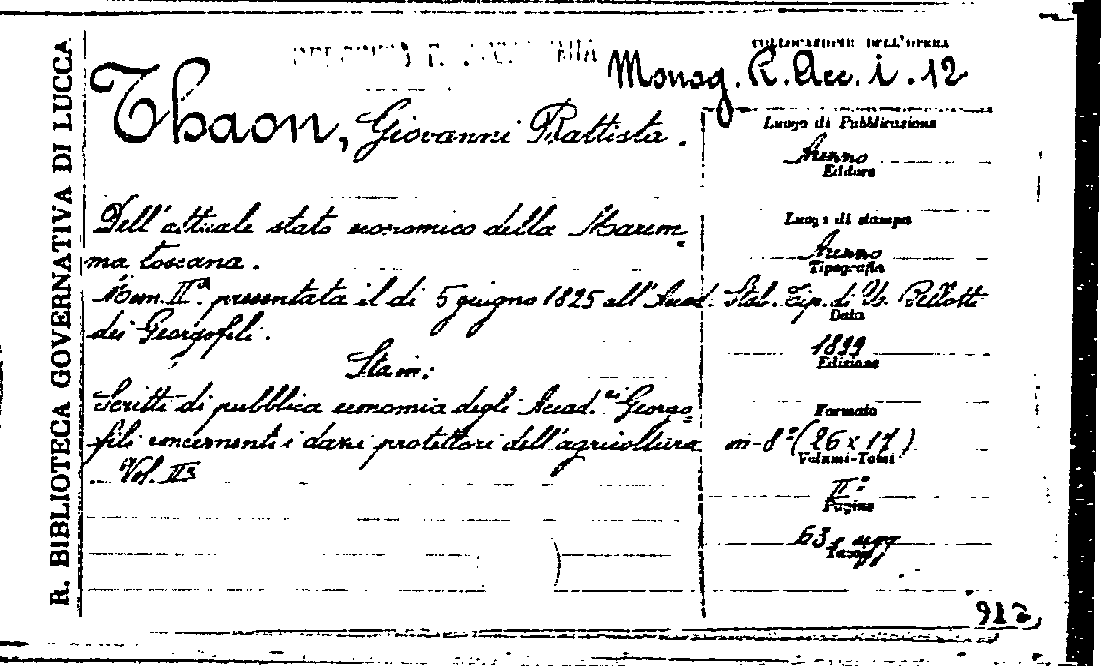 R. BIBLIOTECA GOVERNATIVA DI LUCCA
COLLOCAZIONE DELL'OPERA
Monog. R. Acc. i. 12
Thaon, Giovanni Battista.
Dell'attuale stato economico della Marem=
ma toscana.
Mem. IIª. presentata il di 5 giugno 1825 all'Accad.
dei Georgofili.
Sta in:
Scritti di pubblica economia degli Accad.ci Georgo=
fili concernenti i dazi protettori dell'agricoltura
Vol. IIº
Luogo di Pubblicazione
Arezzo
Editore
Luogo di stampa
Arezzo
Tipografia
Stab. Tip. di U. Bellotti
Data
1899
Edizione
Formato
in-8º (26 x 17)
Volumi-Tomi
IIº
Pagine
63 e segg
912